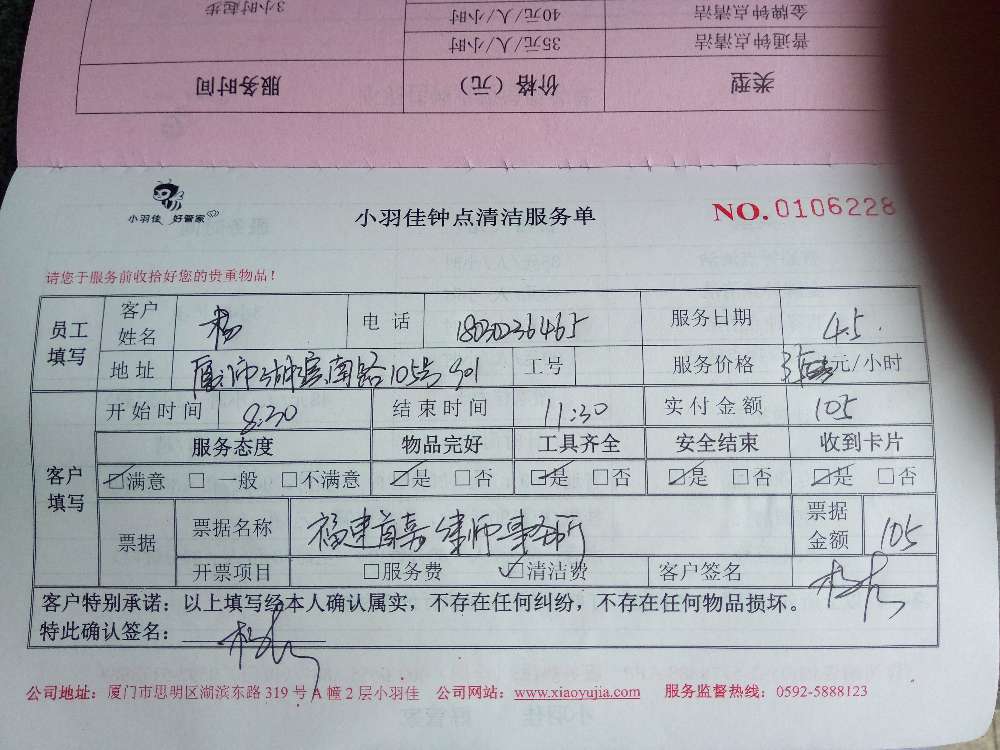 3小时起步
40元/人/小时
金牌钟点清洁
35元/人/小时
普通钟点清洁
服务时间
价格（元）
类型
小羽佳 好管家
小羽佳钟点清洁服务单
NO.0106228
请您于服务前收拾好您的贵重物品！
员工填写
客户姓名 杨 电话 服务日期 4.5.
地址 湖滨南路105号901 工号 服务价格 元/小时
客户填写
开始时间 8:30 结束时间 11:30 实付金额 105
服务态度 物品完好 工具齐全 安全结束 收到卡片
☑满意 □一般 □不满意 ☑是 □否 ☑是 □否 ☑是 □否 ☑是 □否
票据 票据名称 福建首嘉律师事务所 票据金额 105
开票项目 □服务费 ☑清洁费 客户签名
客户特别承诺：以上填写经本人确认属实，不存在任何纠纷，不存在任何物品损坏。
特此确认签名：
公司地址：厦门市思明区湖滨东路319号A幢2层小羽佳 公司网站：www.xiaoyujia.com 服务监督热线：0592-5888123